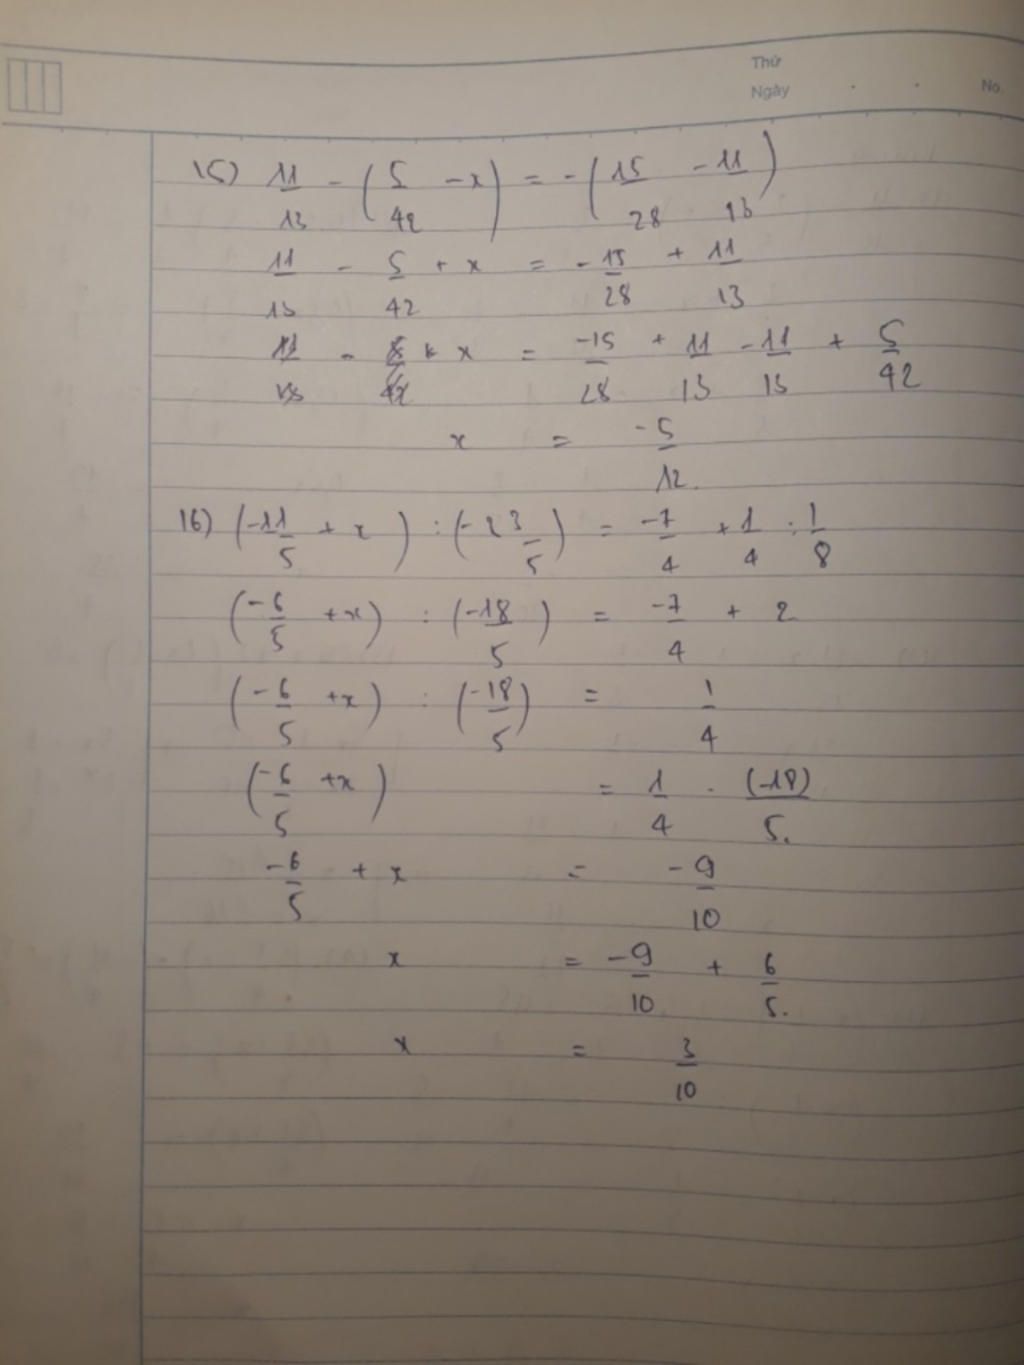 Thứ
Ngày . . No.
15) 11/13 - (5/42 - x) = - (15/28 - 11/13)
11/13 - 5/42 + x = - 15/28 + 11/13
11/13 - 5/42 + x = -15/28 + 11/13 - 11/13 + 5/42
x = -5/12.
16) (-1 1/5 + x) : (-3 3/5) = -7/4 + 1/4 : 1/8
(-6/5 + x) : (-18/5) = -7/4 + 2
(-6/5 + x) : (-18/5) = 1/4
(-6/5 + x) = 1/4 . (-18)/5.
-6/5 + x = -9/10
x = -9/10 + 6/5.
x = 3/10